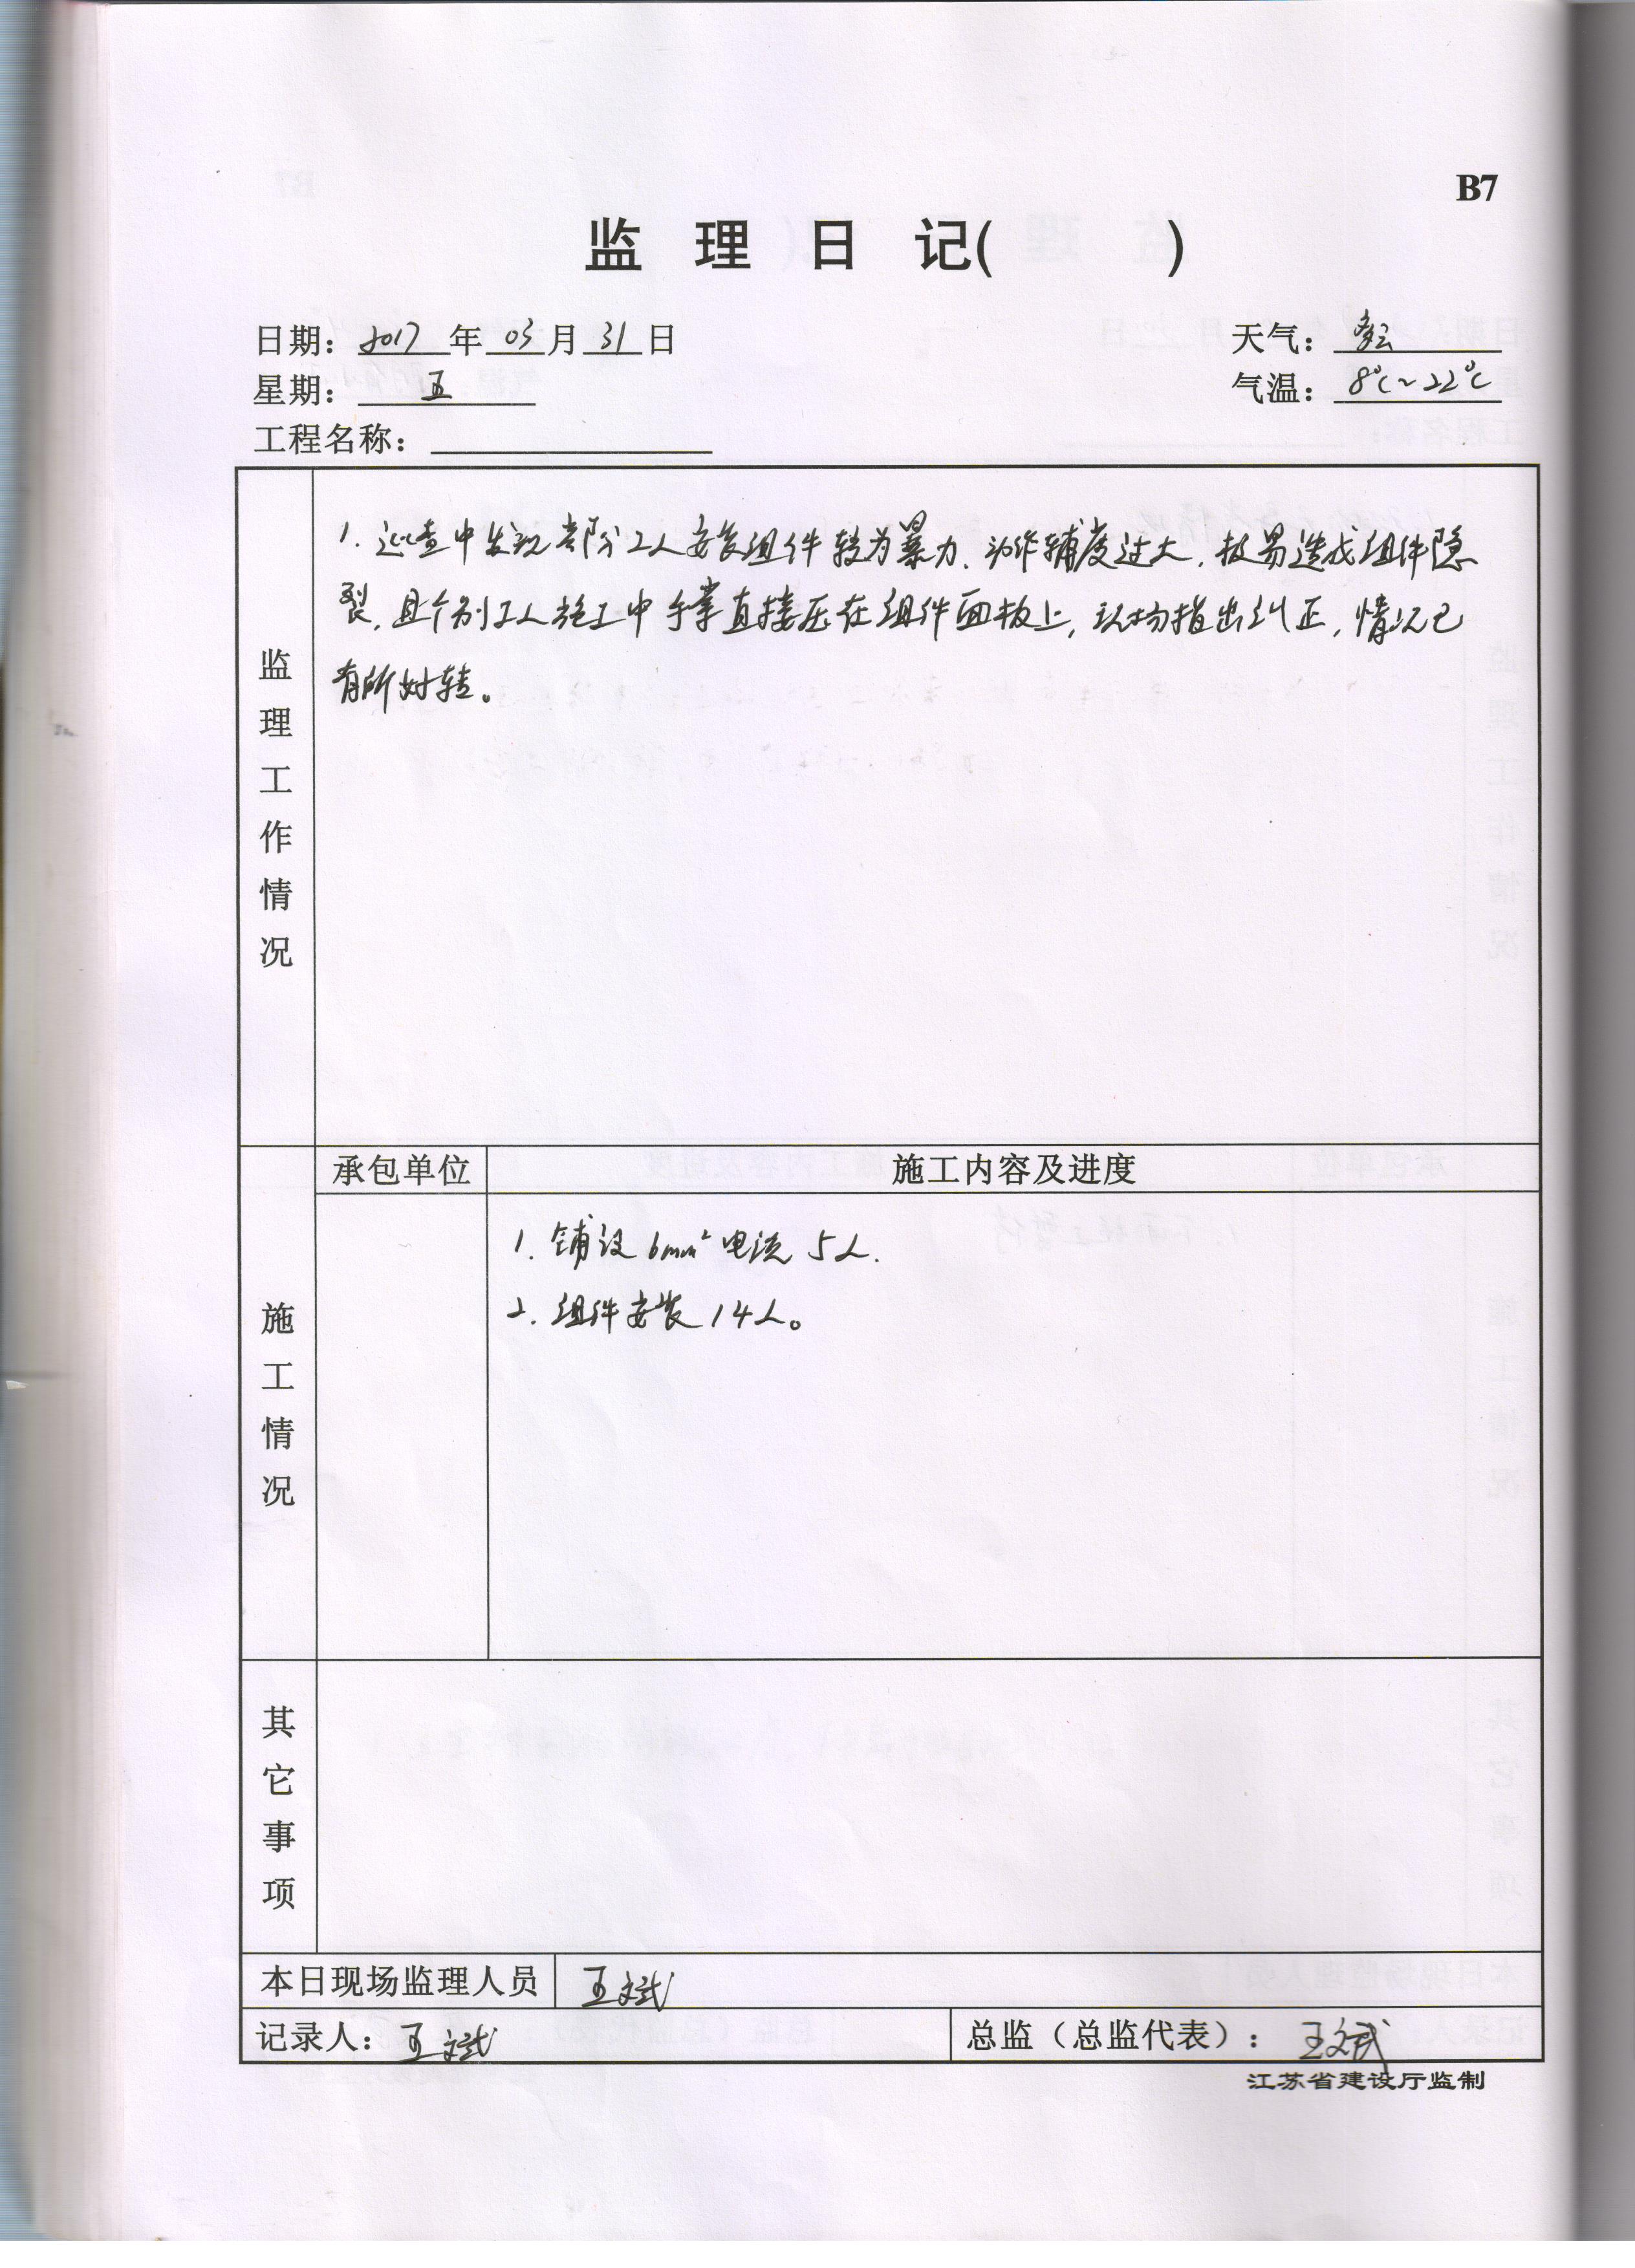 B7
监 理 日 记( )
日期: 2017 年 03 月 31 日
天气: 多云
星期: 五
气温: 8℃~22℃
工程名称:
监理工作情况
1. 巡查中发现部分工人安装组件较为暴力、动作辅度过大,极易造成组件隐
裂,且个别工人施工中手掌直接压在组件面板上,现场指出纠正,情况已
有所好转。
承包单位
施工内容及进度
施工情况
1. 铺设6mm²电流 5人.
2. 组件安装 14人。
其它事项
本日现场监理人员 王文斌
记录人: 王文斌
总监(总监代表): 王文斌
江苏省建设厅监制